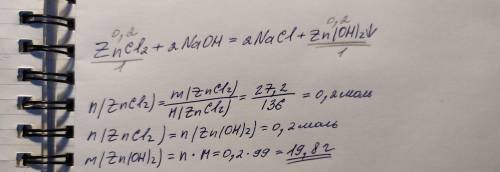 0,2 0,2
ZnCl₂ + 2NaOH = 2NaCl + Zn(OH)₂↓
1 1
n(ZnCl₂) = m(ZnCl₂)/M(ZnCl₂) = 27,2/136 = 0,2 моль
n(ZnCl₂) = n(Zn(OH)₂) = 0,2 моль
m(Zn(OH)₂) = n · M = 0,2 · 99 = 19,8 г